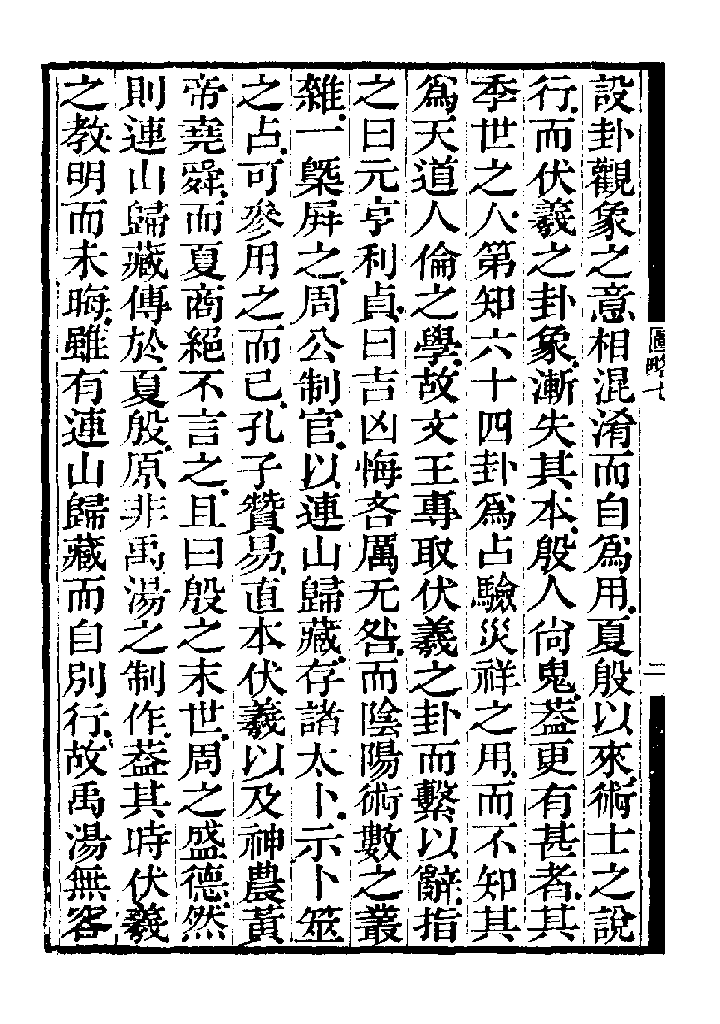 設卦觀象之意相混淆而自爲用夏殷以來術士之說
行而伏羲之卦象漸失其本殷人尙鬼葢更有甚者其
季世之人第知六十四卦爲占驗災祥之用而不知其
爲天道人倫之學故文王專取伏羲之卦而繫以辭指
之曰元亨利貞曰吉凶悔吝厲无咎而陰陽術數之叢
雜一槩屛之周公制官以連山歸藏存諸太卜示卜筮
之占可參用之而已孔子贊易直本伏羲以及神農黃
帝堯舜而夏商絕不言之且曰殷之末世周之盛德然
則連山歸藏傳於夏殷原非禹湯之制作葢其時伏羲
之教明而未晦雖有連山歸藏而自別行故禹湯無容
圖略七
二